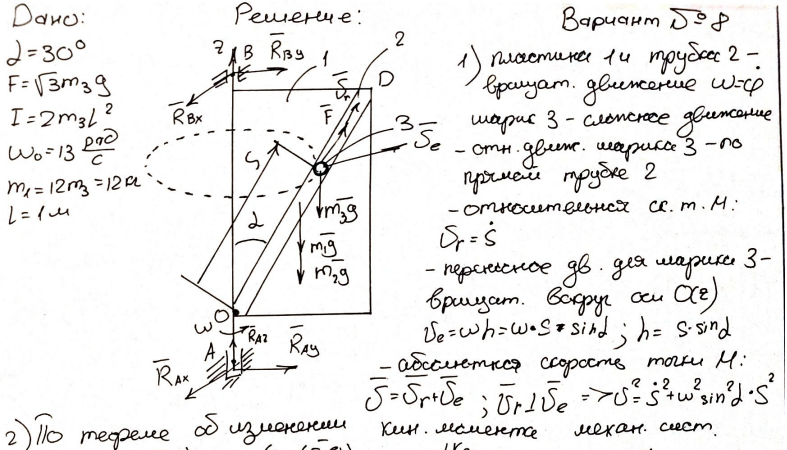 Дано:
α = 30°
F = √3 m₃g
I = 2m₃L²
ω₀ = 13 рад/с
m₁ = 12m₃ = 12 кг
L = 1 м
Решение:
z B R̄_By 1 2
R̄_Bx V̄_r D
F̄ 3 V̄_e
S
α m̄₃g
m̄₁g
m̄₂g
O
ω R̄_Az
A R̄_Ay
R̄_Ax
Вариант №8
1) пластика 1 и трубка 2 –
вращат. движение ω=φ̇
шарик 3 – сложное движение
– отн. движ. шарика 3 – по
прямой трубке 2
– относительная ск. т. М:
V_r = ṡ
– переносное дв. для шарика 3 –
вращат. вокруг оси O(z)
V_e = ωh = ω·s·sinα ; h = s·sinα
– абсолютная скорость точки М:
V̄ = V̄_r + V̄_e ; V̄_r ⊥ V̄_e => V² = ṡ² + ω² sin²α · S²
2) По теореме об изменении кин. момента механ. сист.